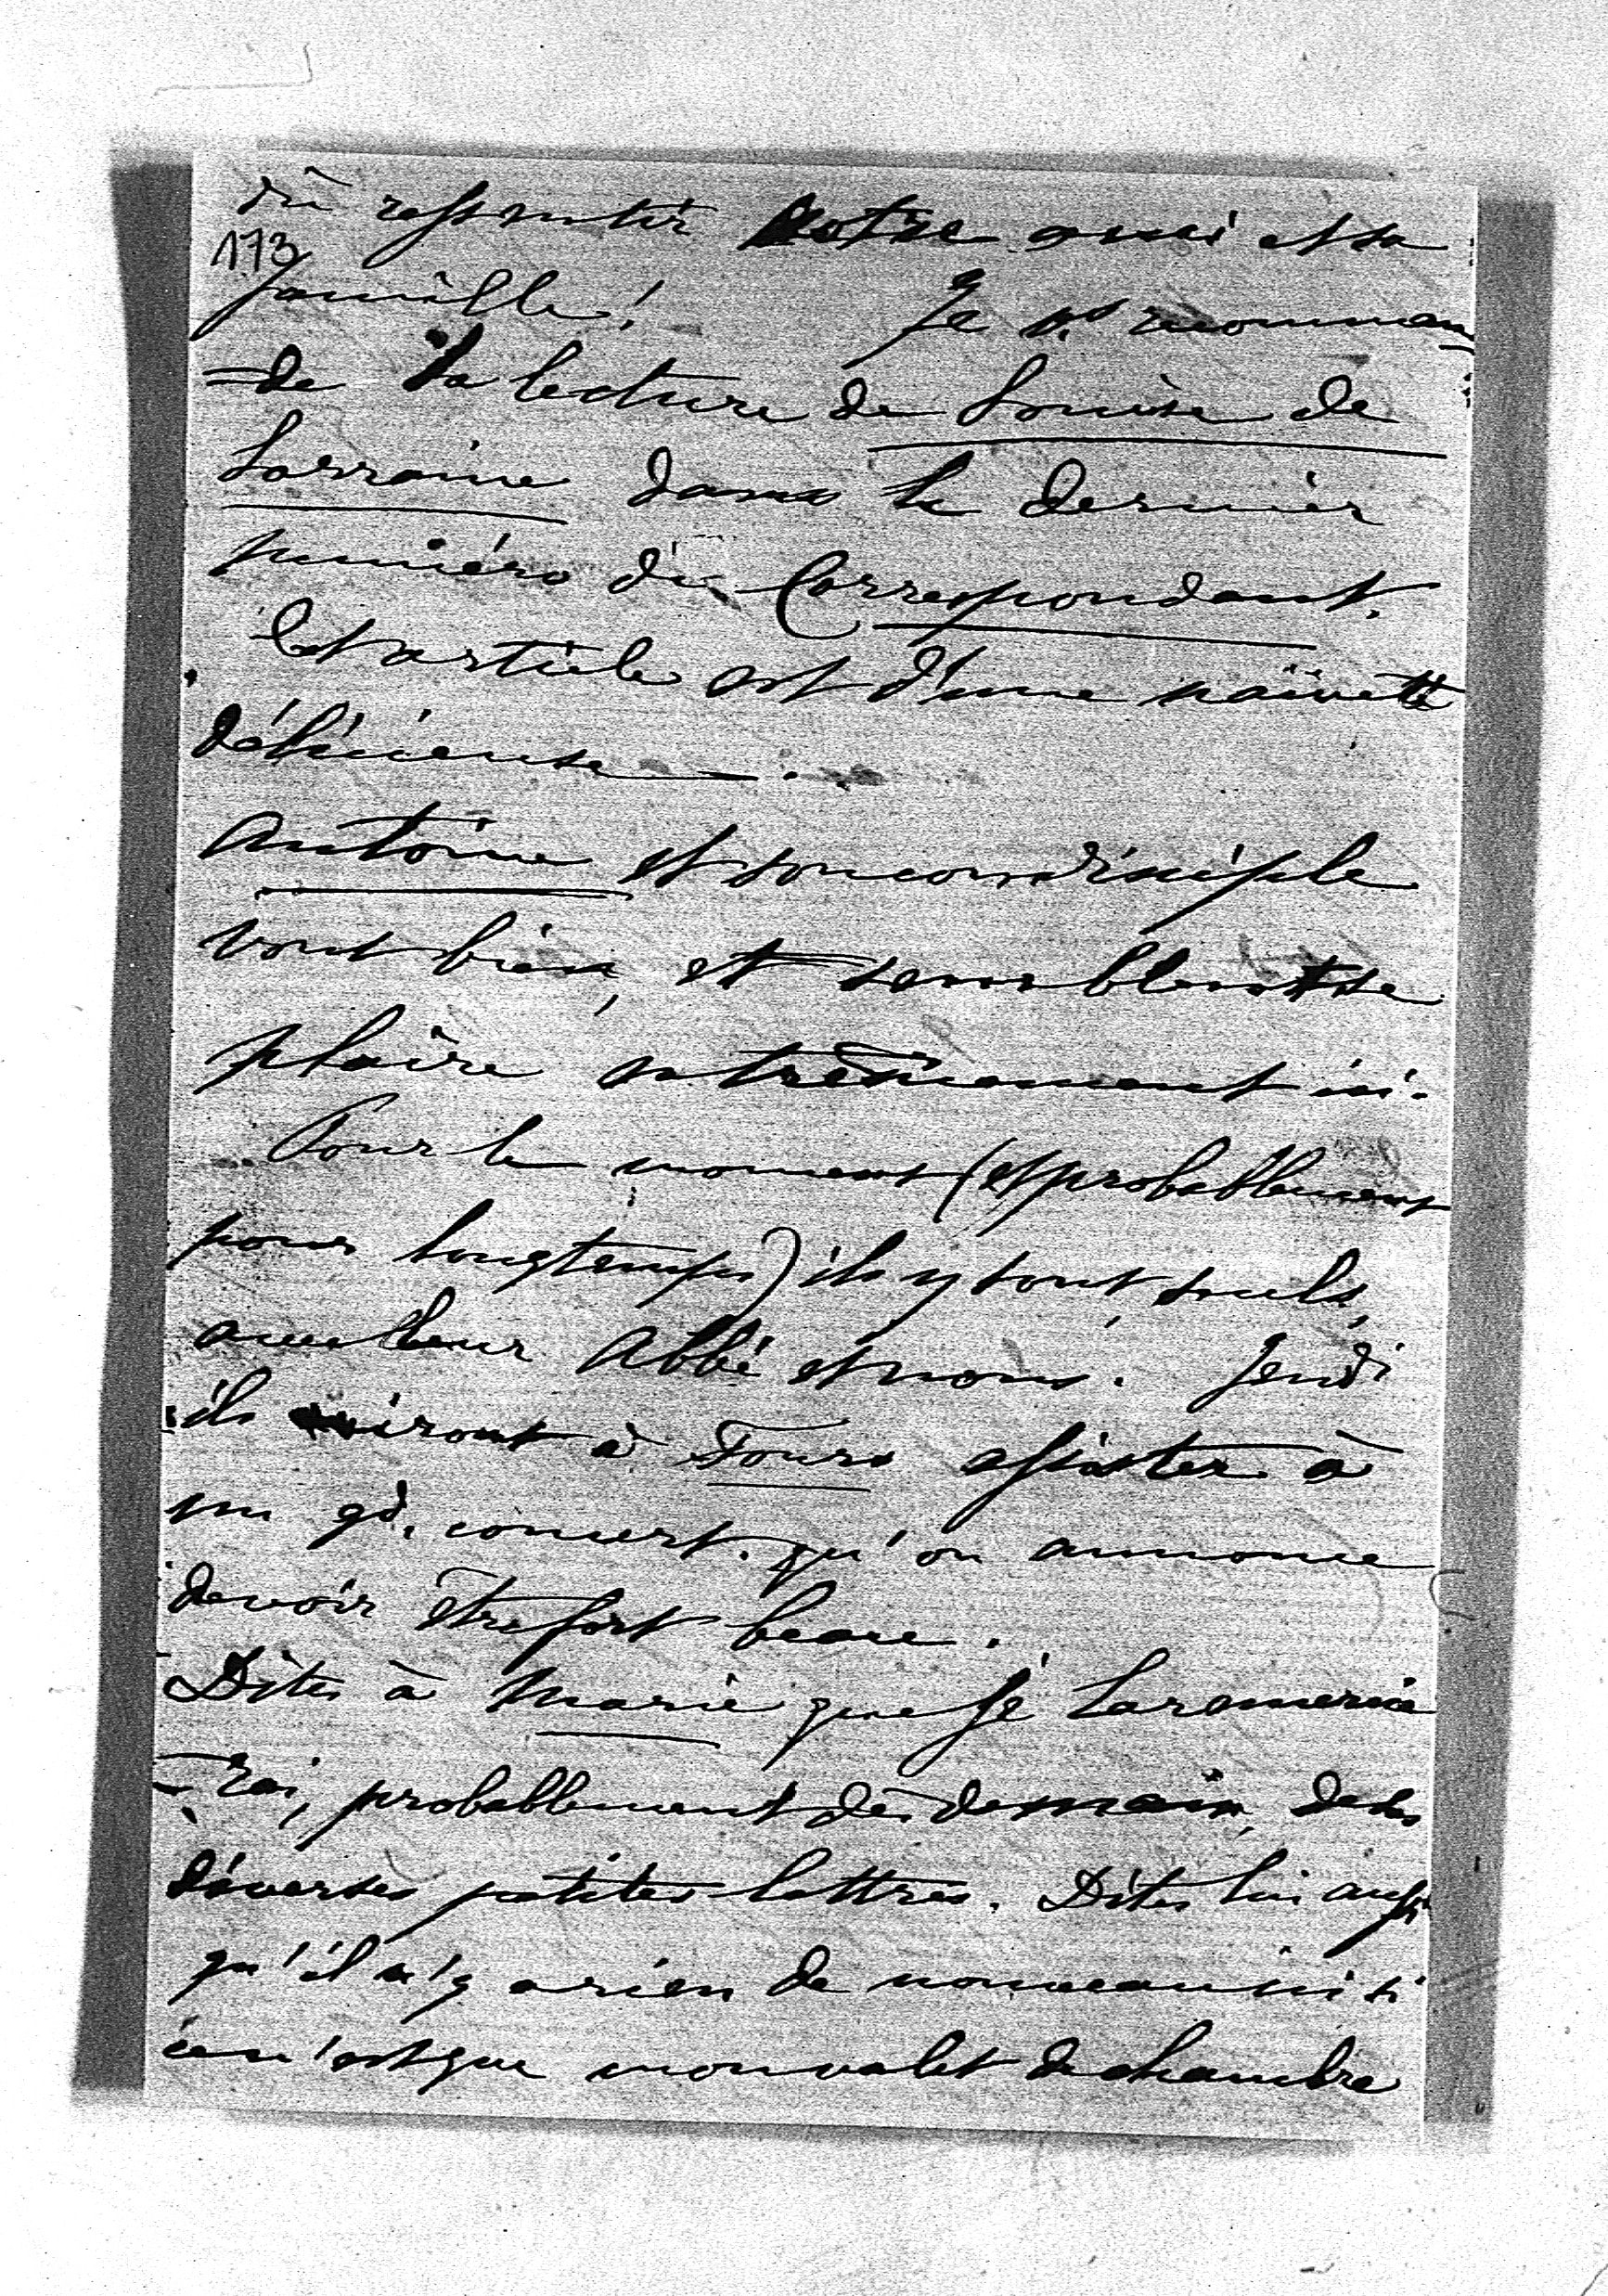 dû ressentir votre ami et sa
173
famille! Je vs recomman
=de la lecture de Louise de
Lorraine dans le dernier
numéro du Correspondant.
Cet article est d'une naïveté
délicieuse.
Antoine et son condisciple
vont bien, et semblent se
plaire extrêmement ici.
Pour le moment (et probablement
pour longtemps) ils y sont seuls,
avec leur Abbé et nous. Jeudi
ils iront à Tours assister à
un gd. concert. qu'on annonce
devoir être fort beau.
Dites à Marie que je la remercie
-rai, probablement dès demain, de ses
diverses petites lettres. Dites lui aussi
qu'il n'y a rien de nouveau ici si
ce n'est que mon valet de chambre